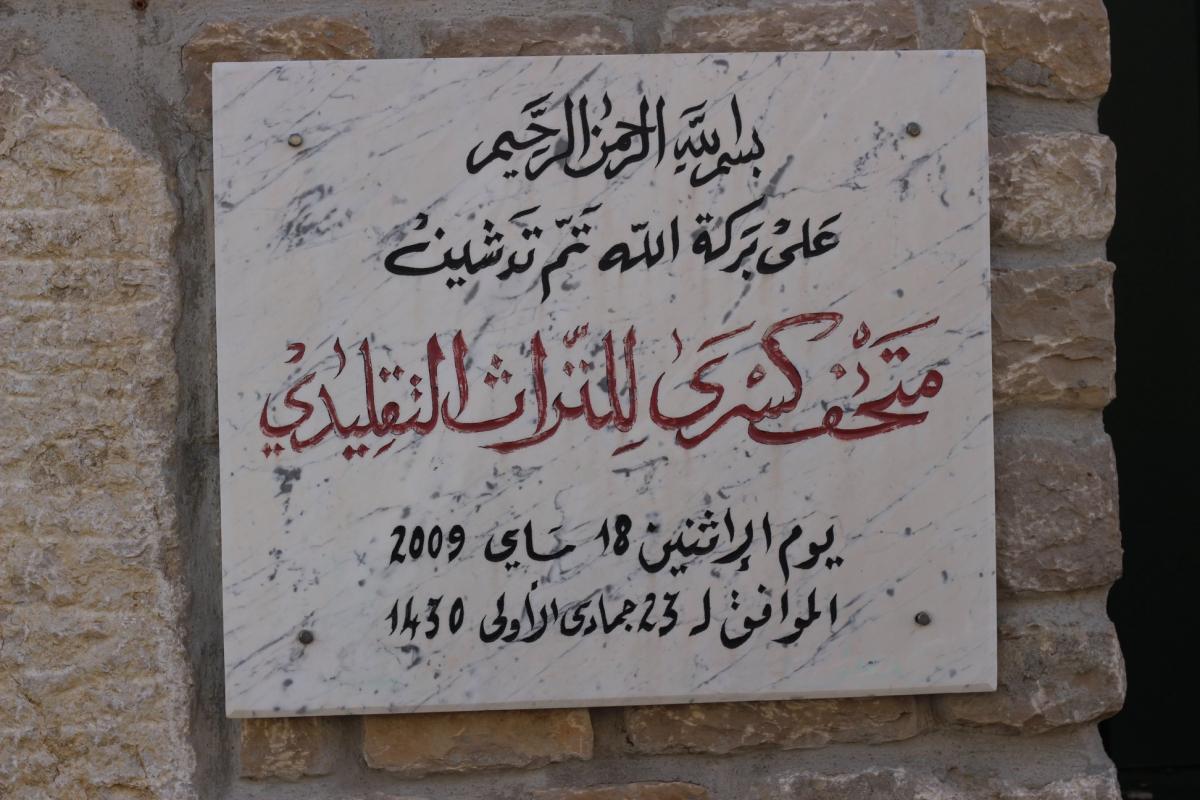 بسم الله الرحمن الرحيم
على بركة الله تم تدشين
متحف كسرى للتراث التقليدي
يوم الإثنين 18 ماي 2009
الموافق لـ 23 جمادى الأولى 1430